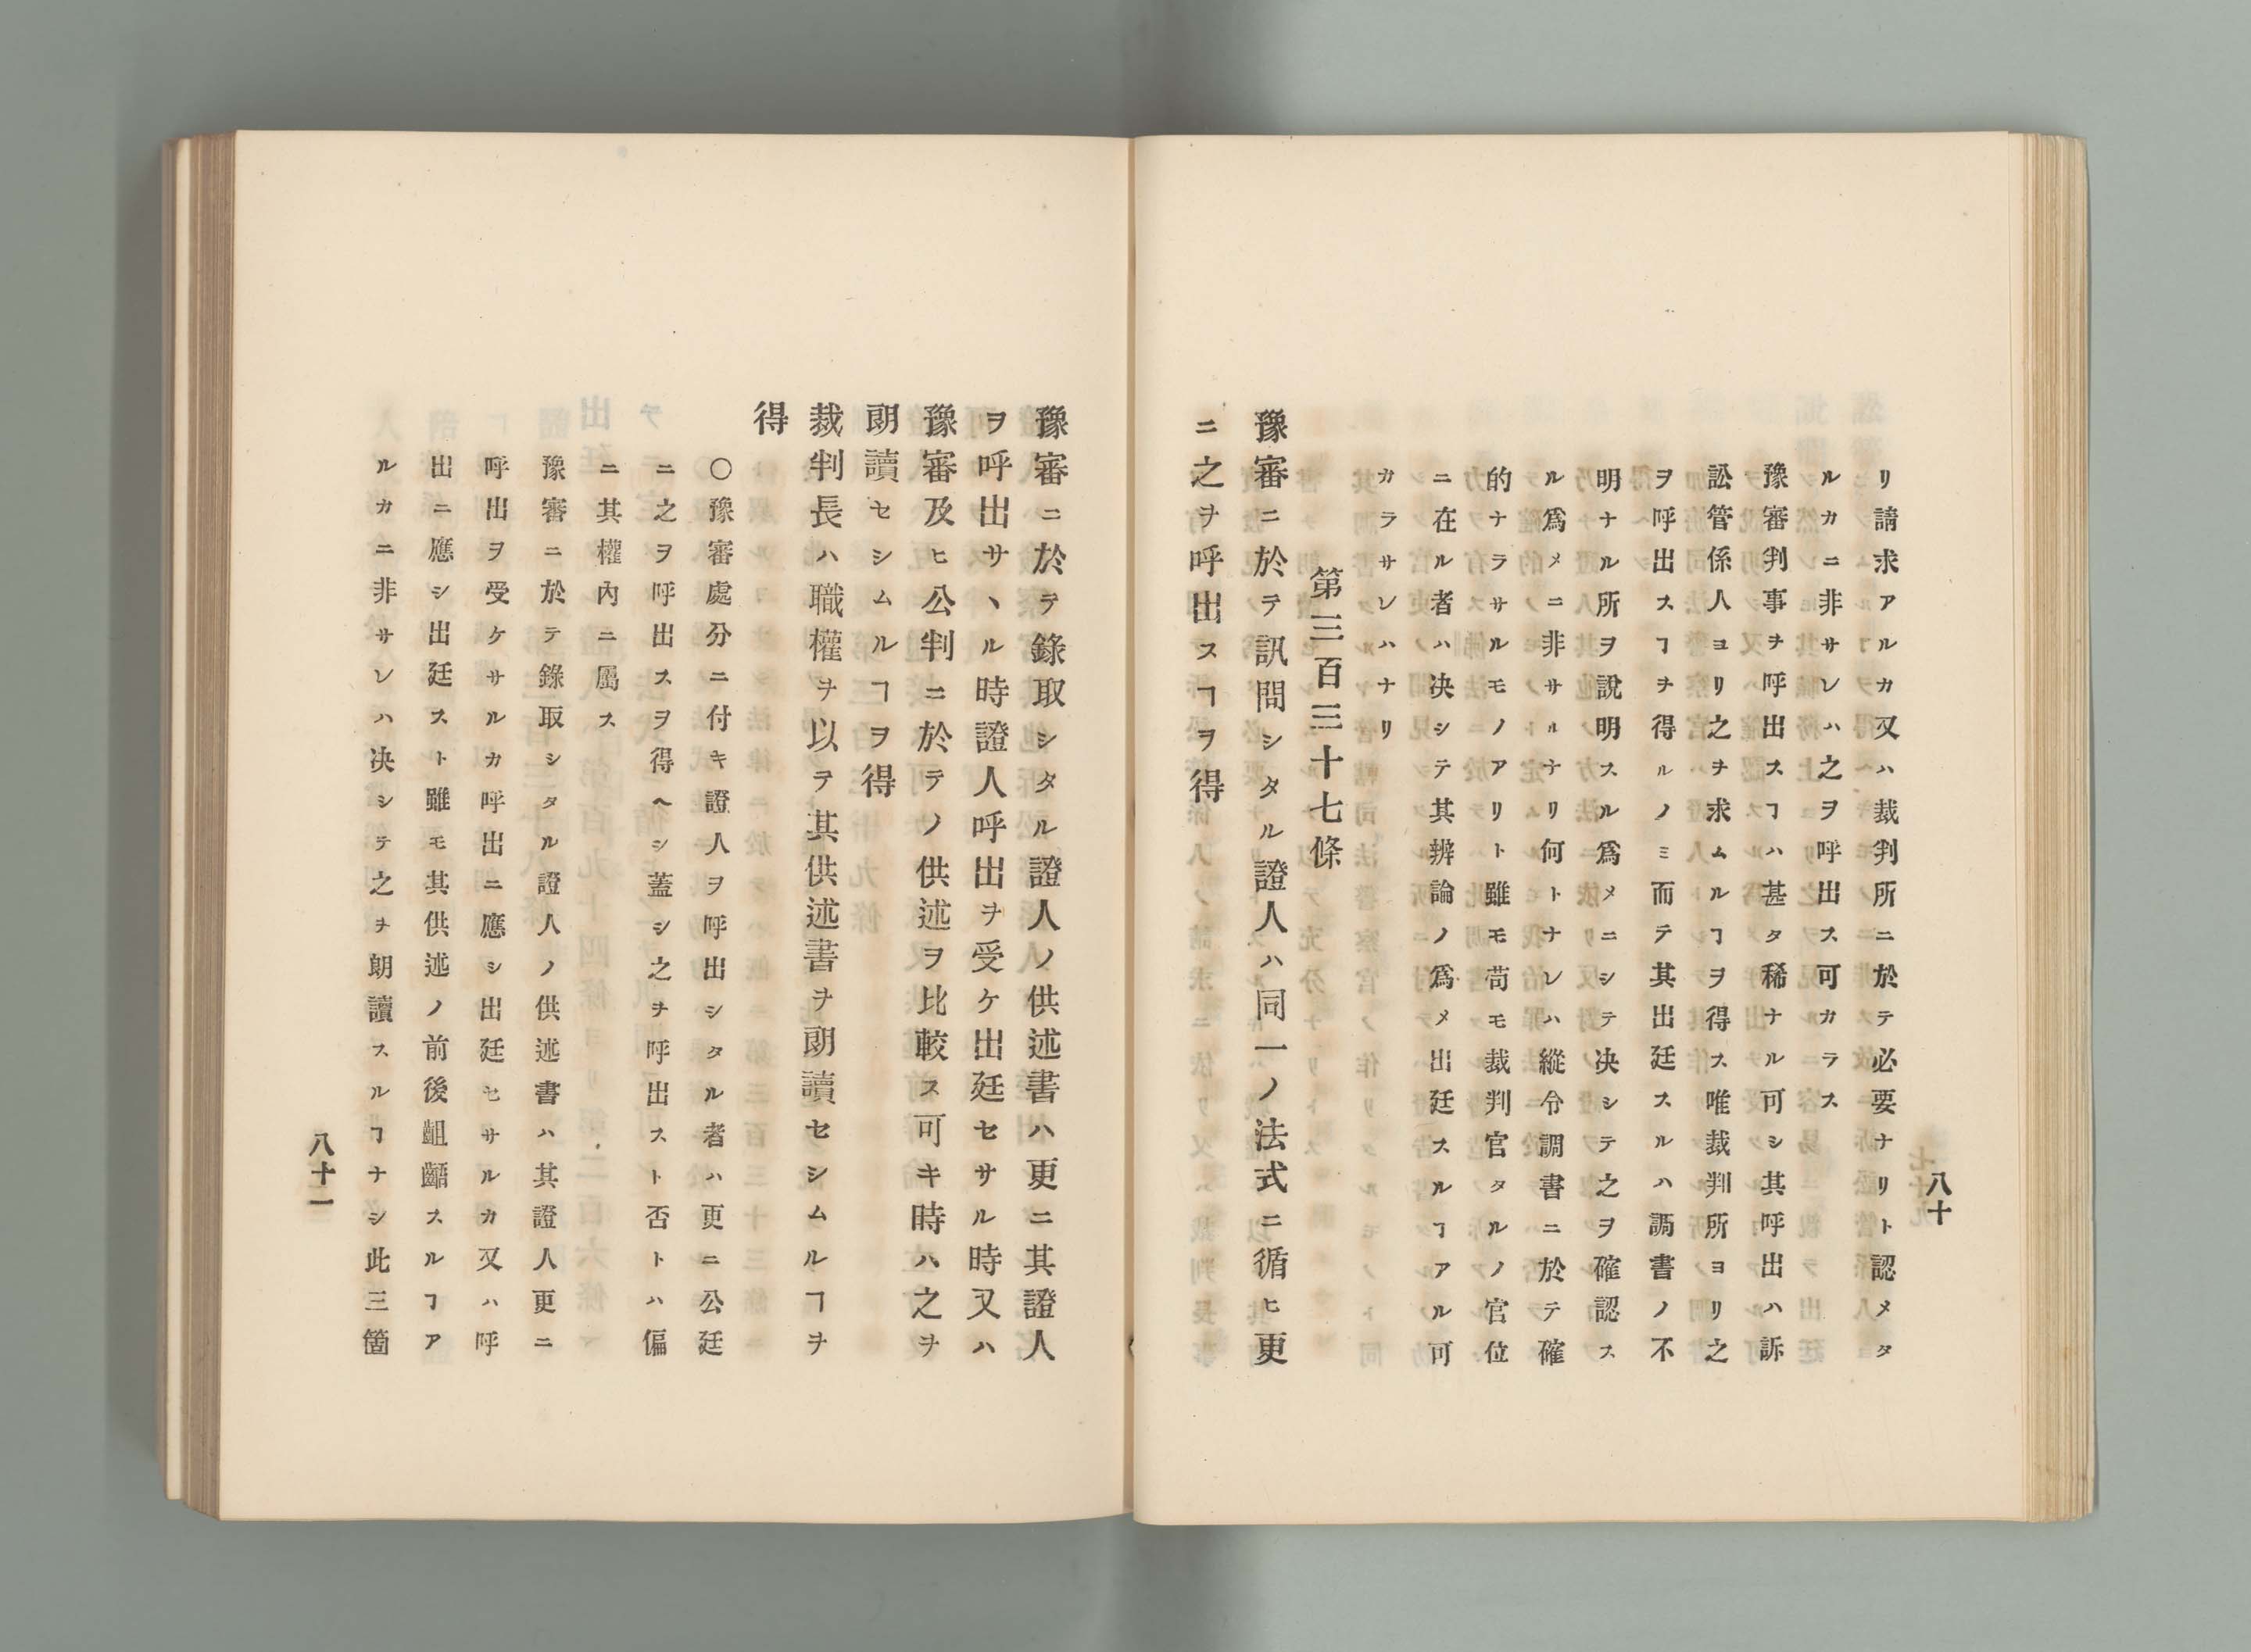 八十
リ請求アルカ又ハ裁判所ニ於テ必要ナリト認メタ
ルカニ非サレハ之ヲ呼出ス可カラス
豫審判事ヲ呼出スヿハ甚タ稀ナル可シ其呼出ハ訴
訟管係人ヨリ之ヲ求ムルヿヲ得ス唯裁判所ヨリ之
ヲ呼出スヿヲ得ルノミ而テ其出廷スルハ調書ノ不
明ナル所ヲ說明スル爲メニシテ决シテ之ヲ確認ス
ル爲メニ非サルナリ何トナレハ縱令調書ニ於テ確
的ナラサルモノアリト雖モ苟モ裁判官タルノ官位
ニ在ル者ハ决シテ其辨論ノ爲メ出廷スルヿアル可
カラサレハナリ
第三百三十七條
豫審ニ於テ訊問シタル證人ハ同一ノ法式ニ循ヒ更
ニ之ヲ呼出スヿヲ得
豫審ニ於テ錄取シタル證人ノ供述書ハ更ニ其證人
ヲ呼出サヽル時證人呼出ヲ受ケ出廷セサル時又ハ
豫審及ヒ公判ニ於テノ供述ヲ比較ス可キ時ハ之ヲ
朗讀セシムルヿヲ得
裁判長ハ職權ヲ以テ其供述書ヲ朗讀セシムルヿヲ
得
〇豫審處分ニ付キ證人ヲ呼出シタル者ハ更ニ公廷
ニ之ヲ呼出スヲ得ヘシ蓋シ之ヲ呼出スト否トハ偏
ニ其權內ニ屬ス
豫審ニ於テ錄取シタル證人ノ供述書ハ其證人更ニ
呼出ヲ受ケサルカ呼出ニ應シ出廷セサルカ又ハ呼
出ニ應シ出廷スト雖モ其供述ノ前後齟齬スルヿア
ルカニ非サレハ决シテ之ヲ朗讀スルヿナシ此三箇
八十一